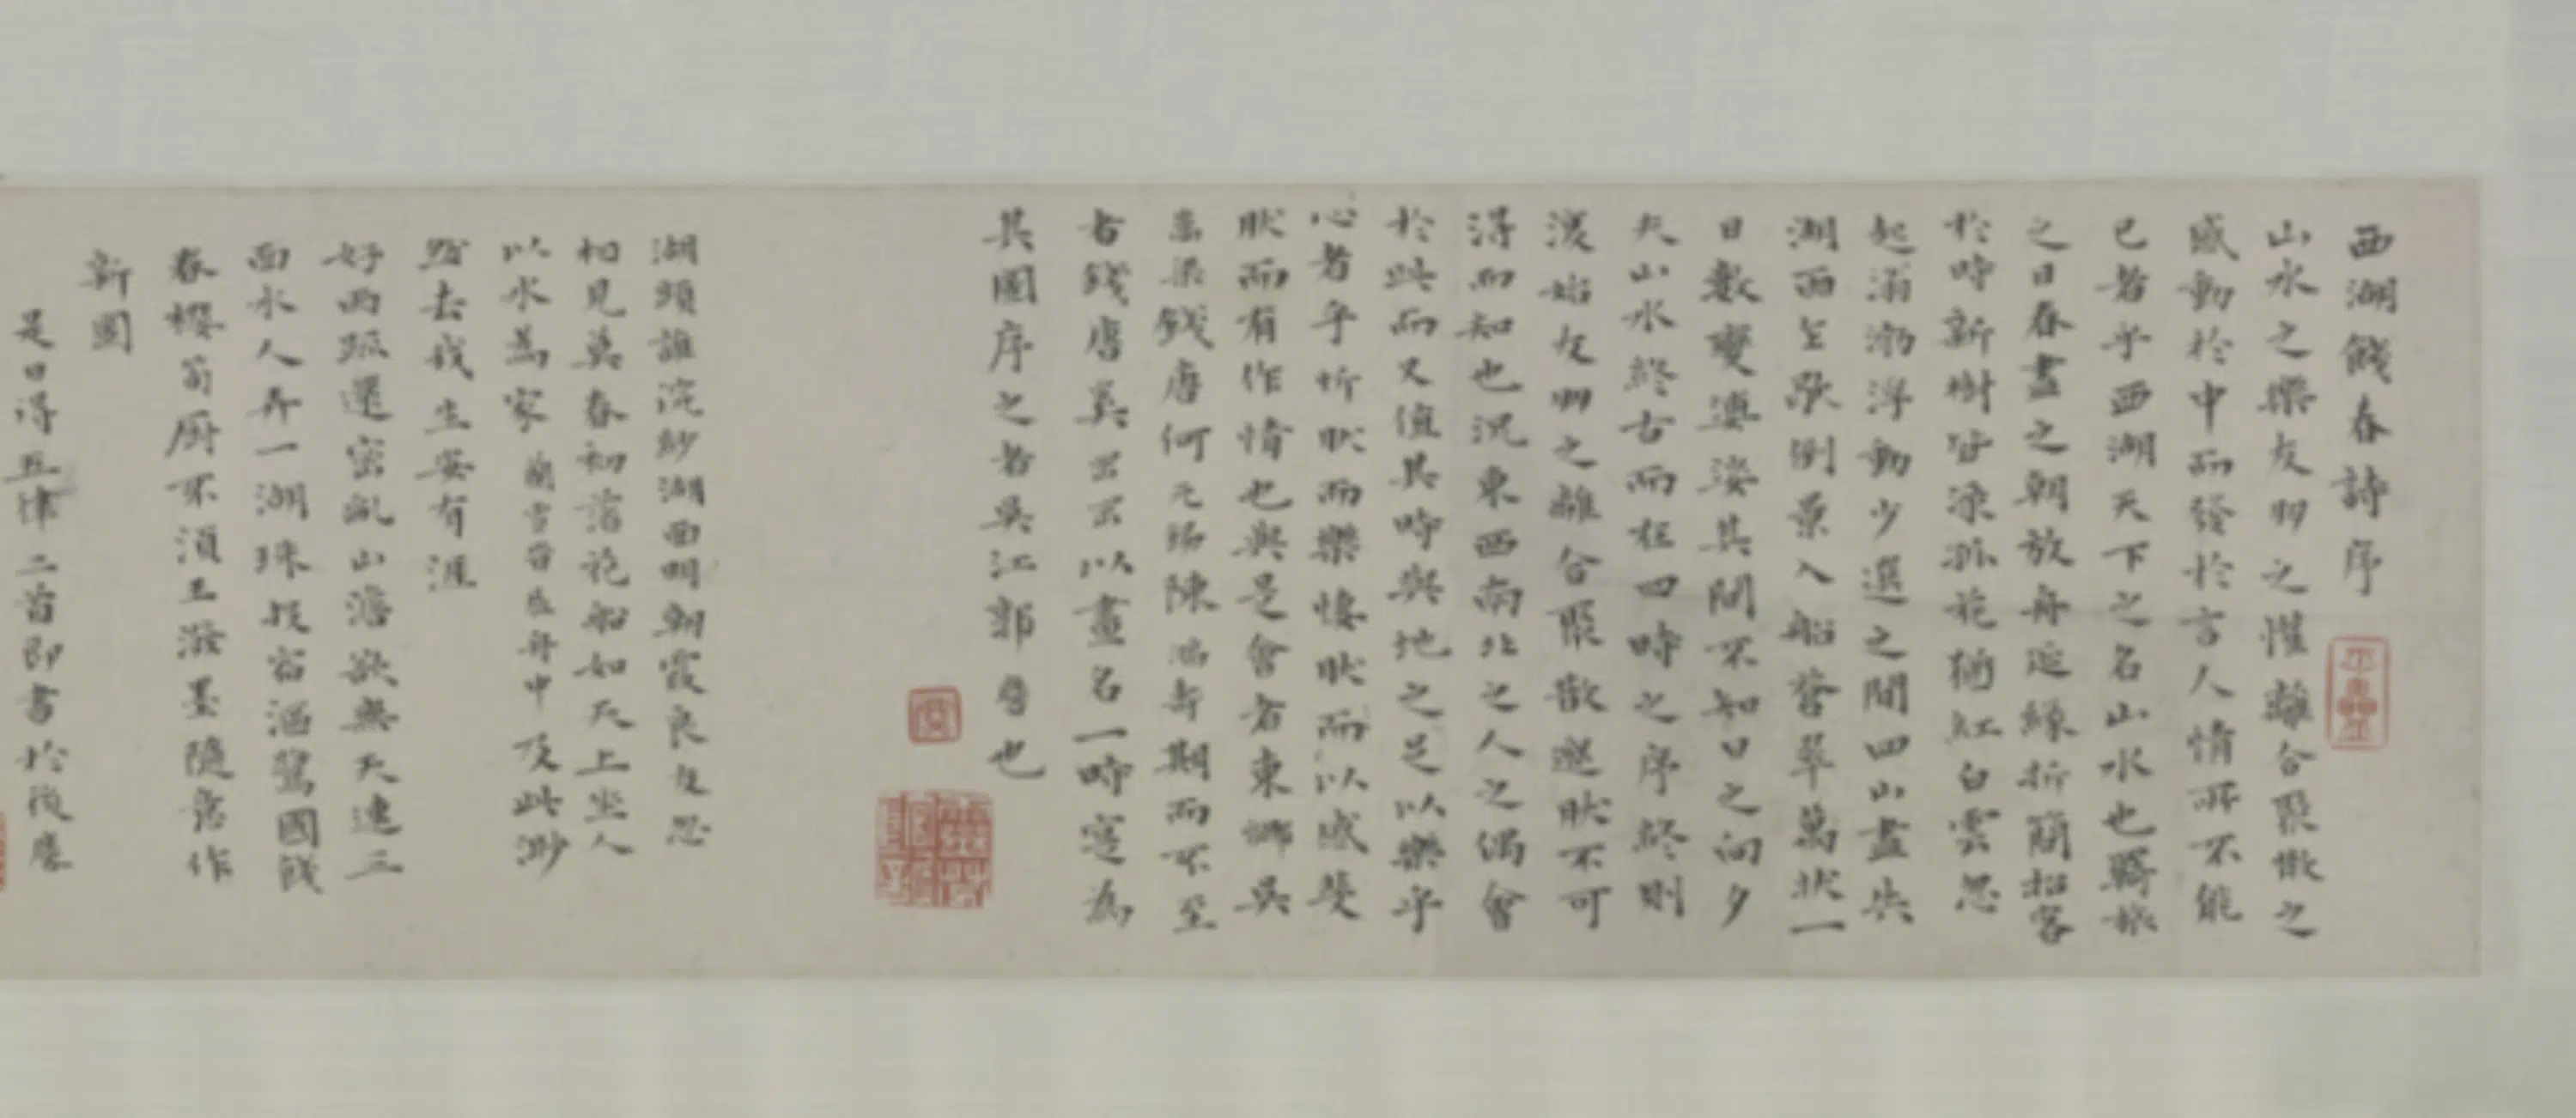 西湖餞春詩序
山水之樂友朋之懽離合聚散之
感動於中而發於言人情所不能
已者乎西湖天下之名山水也羇旅
之日春盡之朝放舟延緣折簡招客
於時新樹皆深孤花猶紅白雲忽
起滃渤浮動少選之間四山盡失
湖面空濛倒景入船蒼翠萬狀一
日數變遷姿其間不知日之向夕
夫山水終古而在四時之序終則
復始友朋之離合聚散邈然不可
得而知也況東西南北之人之偶會
於此而又值其時與地之足以樂乎
心者乎忻然而樂悽然而以感斐
然而有作情也與是會者東鄉吳
嵩梁錢唐何元錫陳鴻壽期而不至
者錢唐奚岡以畫名一時寔為
其圖序之者吳江郭麐也
湖頭誰浣紗湖面明朝霞良友忽
相見萬春初落花船如天上坐人
以水為家 蘭雪皆在舟中 及此渺
然去我生安有涯
好雨疏還密亂山澹欲無天連三
面水人弄一湖珠 酒醆國餞
春櫻筍厨不須王潑墨隨意作
新圖
是日得五律二首即書於後麐